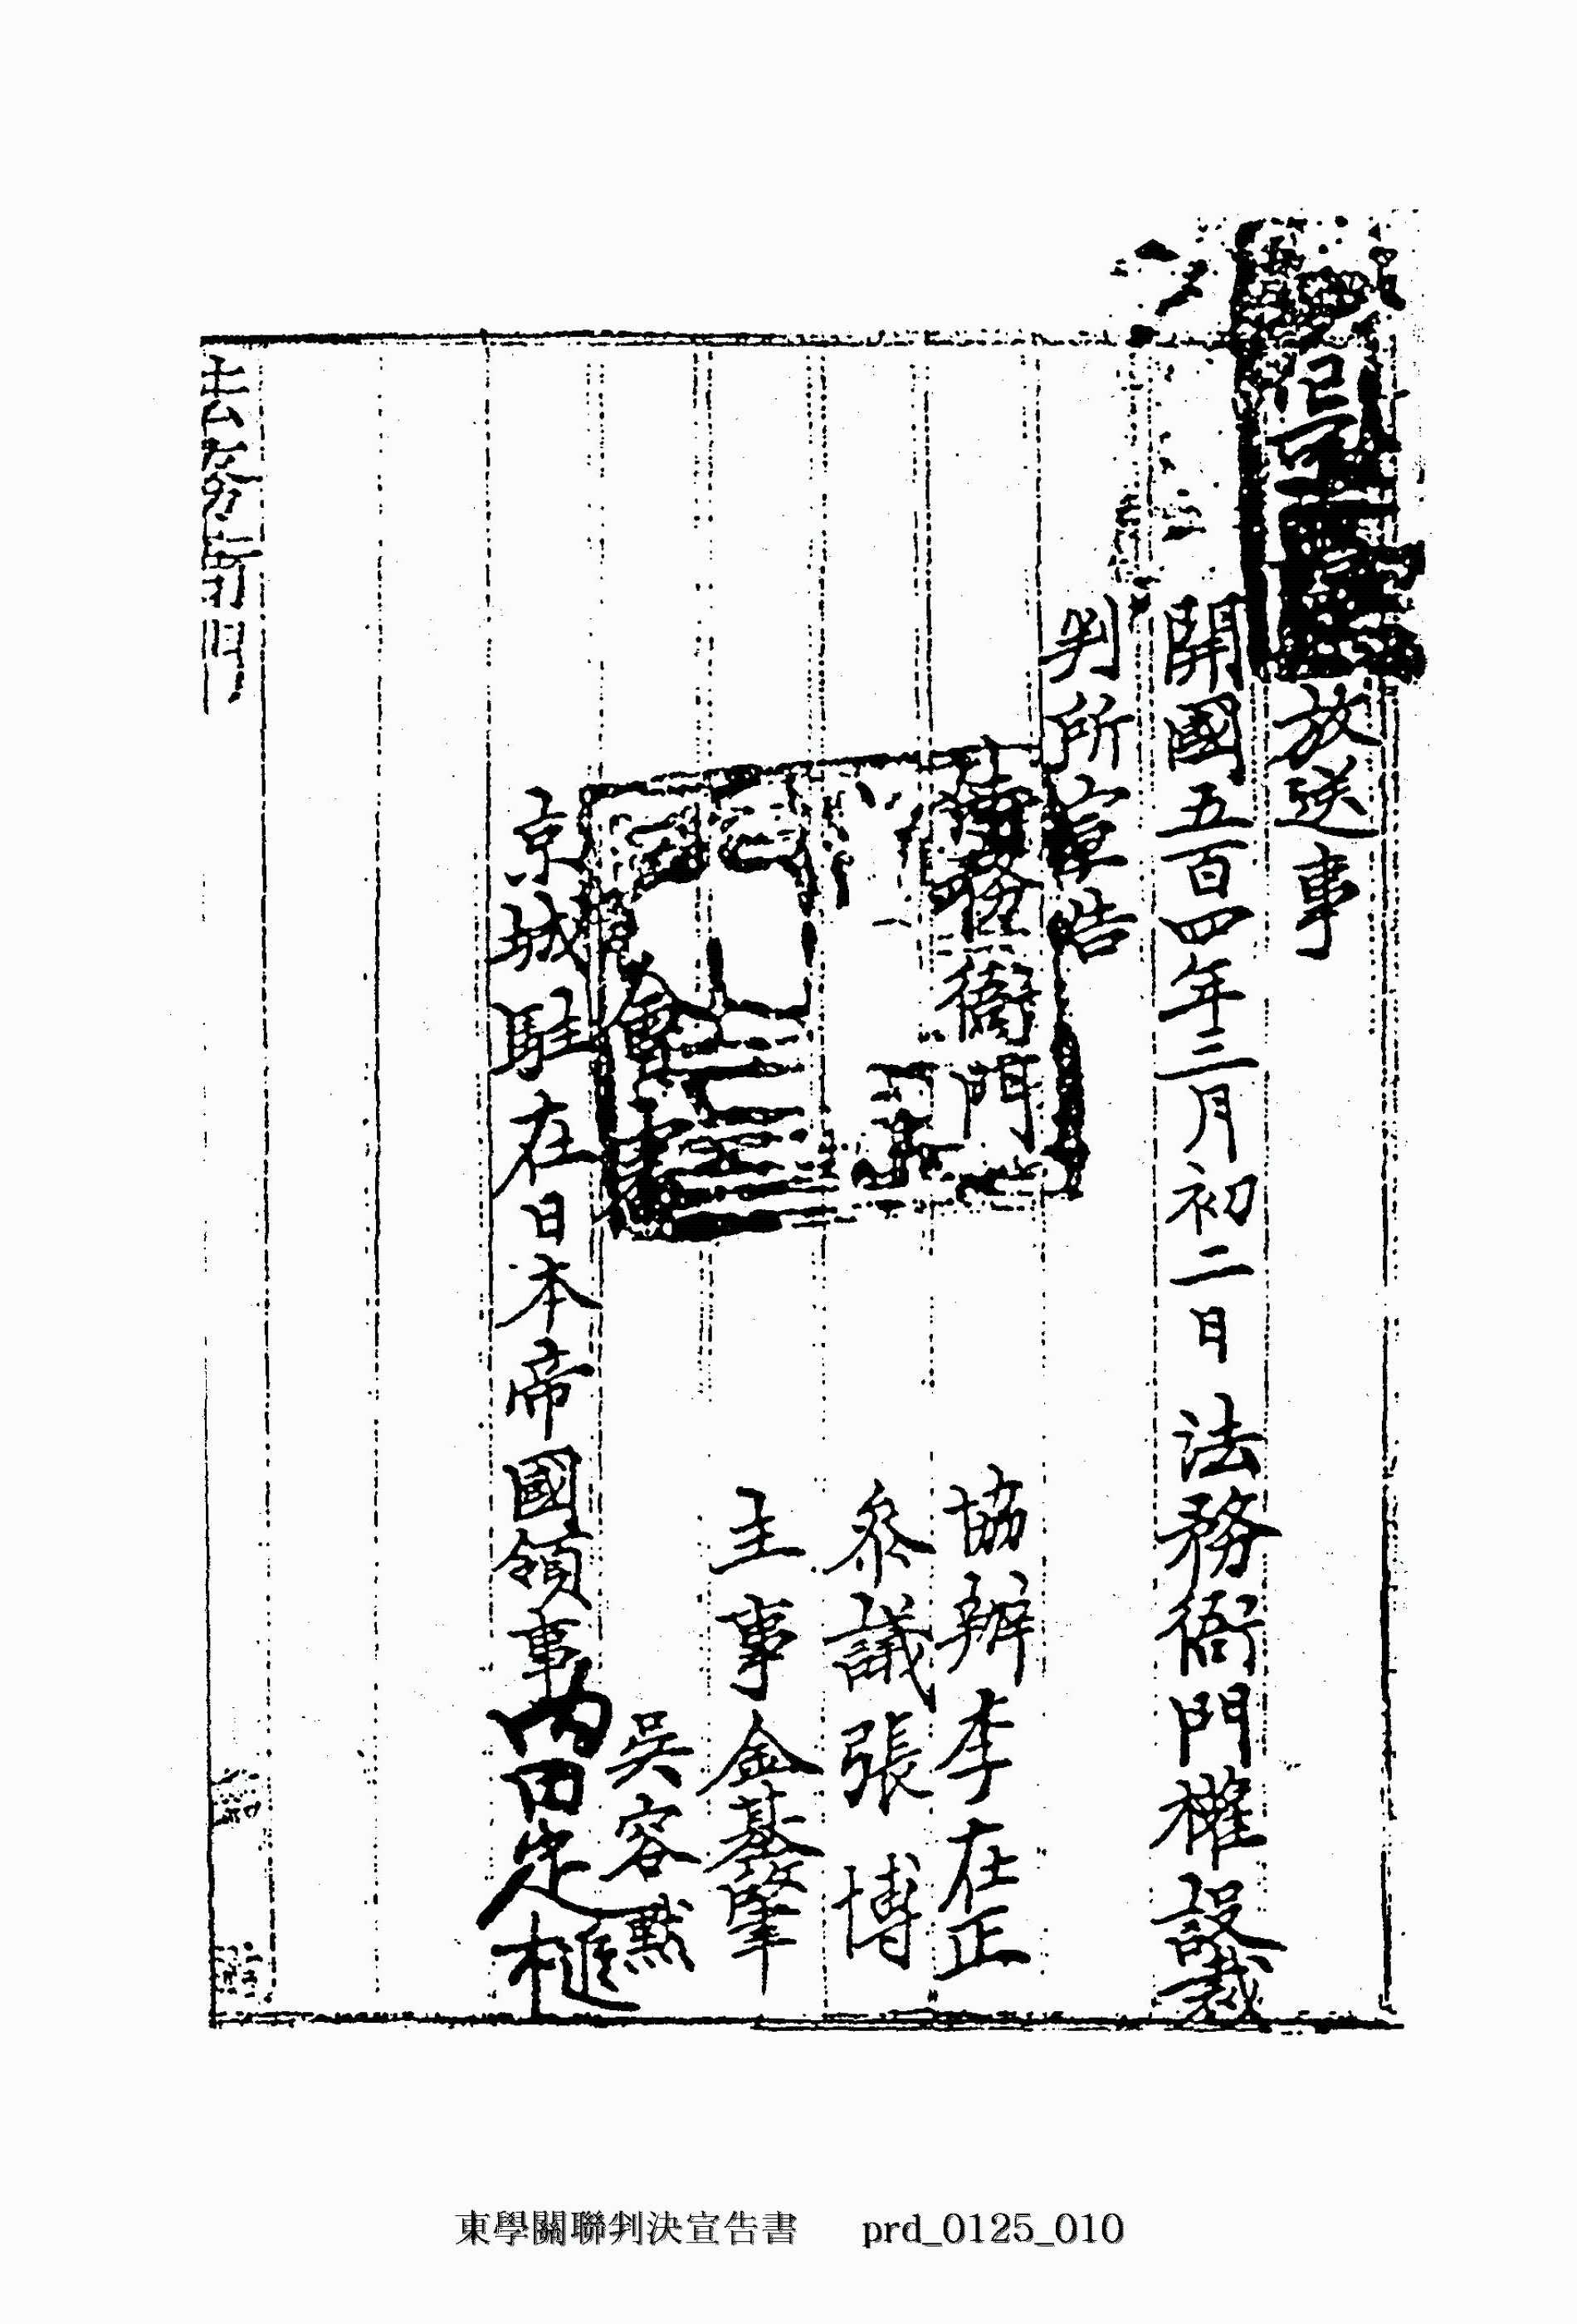 放送事
開國五百四年三月初二日 法務衙門權設裁
判所宣告
法務衙門
協辦李在正
參議張 博
主事金基肇
吳容默
京城駐在日本帝國領事内田定槌
法務衙門
東學關聯判決宣告書 prd_0125_010